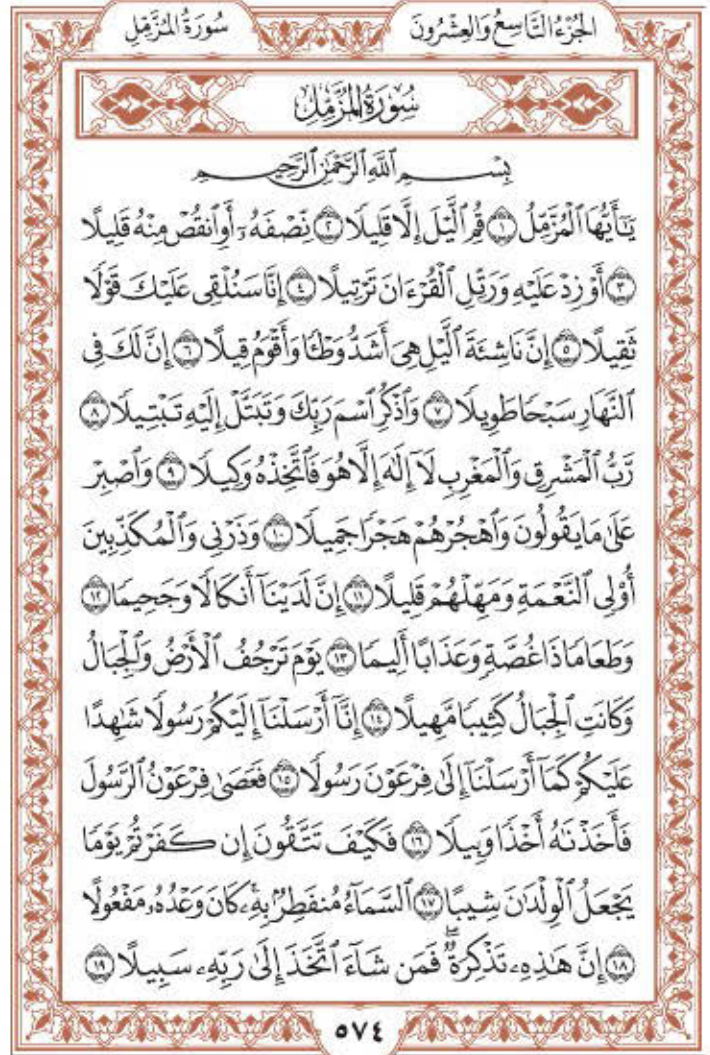 الجُزْءُ التَّاسِعُ وَالعِشْرُونَ سُورَةُ المُزَّمِّلِ
سُورَةُ المُزَّمِّلِ
بِسْمِ ٱللَّهِ ٱلرَّحْمَٰنِ ٱلرَّحِيمِ
يَٰٓأَيُّهَا ٱلْمُزَّمِّلُ ١ قُمِ ٱلَّيْلَ إِلَّا قَلِيلًا ٢ نِّصْفَهُۥٓ أَوِ ٱنقُصْ مِنْهُ قَلِيلًا
٣ أَوْ زِدْ عَلَيْهِ وَرَتِّلِ ٱلْقُرْءَانَ تَرْتِيلًا ٤ إِنَّا سَنُلْقِى عَلَيْكَ قَوْلًا
ثَقِيلًا ٥ إِنَّ نَاشِئَةَ ٱلَّيْلِ هِىَ أَشَدُّ وَطْـًٔا وَأَقْوَمُ قِيلًا ٦ إِنَّ لَكَ فِى
ٱلنَّهَارِ سَبْحًا طَوِيلًا ٧ وَٱذْكُرِ ٱسْمَ رَبِّكَ وَتَبَتَّلْ إِلَيْهِ تَبْتِيلًا ٨
رَّبُّ ٱلْمَشْرِقِ وَٱلْمَغْرِبِ لَآ إِلَٰهَ إِلَّا هُوَ فَٱتَّخِذْهُ وَكِيلًا ٩ وَٱصْبِرْ
عَلَىٰ مَا يَقُولُونَ وَٱهْجُرْهُمْ هَجْرًا جَمِيلًا ١٠ وَذَرْنِى وَٱلْمُكَذِّبِينَ
أُو۟لِى ٱلنَّعْمَةِ وَمَهِّلْهُمْ قَلِيلًا ١١ إِنَّ لَدَيْنَآ أَنكَالًا وَجَحِيمًا ١٢
وَطَعَامًا ذَا غُصَّةٍ وَعَذَابًا أَلِيمًا ١٣ يَوْمَ تَرْجُفُ ٱلْأَرْضُ وَٱلْجِبَالُ
وَكَانَتِ ٱلْجِبَالُ كَثِيبًا مَّهِيلًا ١٤ إِنَّآ أَرْسَلْنَآ إِلَيْكُمْ رَسُولًا شَٰهِدًا
عَلَيْكُمْ كَمَآ أَرْسَلْنَآ إِلَىٰ فِرْعَوْنَ رَسُولًا ١٥ فَعَصَىٰ فِرْعَوْنُ ٱلرَّسُولَ
فَأَخَذْنَٰهُ أَخْذًا وَبِيلًا ١٦ فَكَيْفَ تَتَّقُونَ إِن كَفَرْتُمْ يَوْمًا
يَجْعَلُ ٱلْوِلْدَٰنَ شِيبًا ١٧ ٱلسَّمَآءُ مُنفَطِرٌۢ بِهِۦ ۚ كَانَ وَعْدُهُۥ مَفْعُولًا
١٨ إِنَّ هَٰذِهِۦ تَذْكِرَةٌ ۖ فَمَن شَآءَ ٱتَّخَذَ إِلَىٰ رَبِّهِۦ سَبِيلًا ١٩
٥٧٤